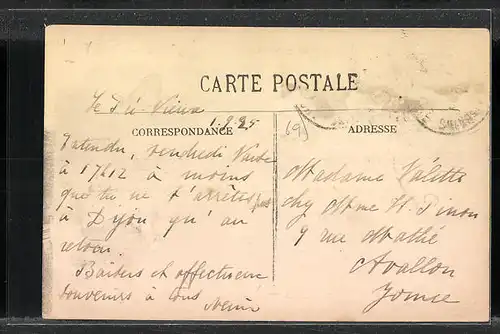 CARTE POSTALE
Le Pré-Vieux
1.9.25
CORRESPONDANCE
T'attendu, vendredi
à 17h12 à moins
que tu ne t'arrêtes pas
à Dijon qu'au
retour.
Baisers et affectueux
souvenirs à tous
ADRESSE
Madame Valette
chez Mme H. Pinon
9 rue Mathé
Avallon
Yonne